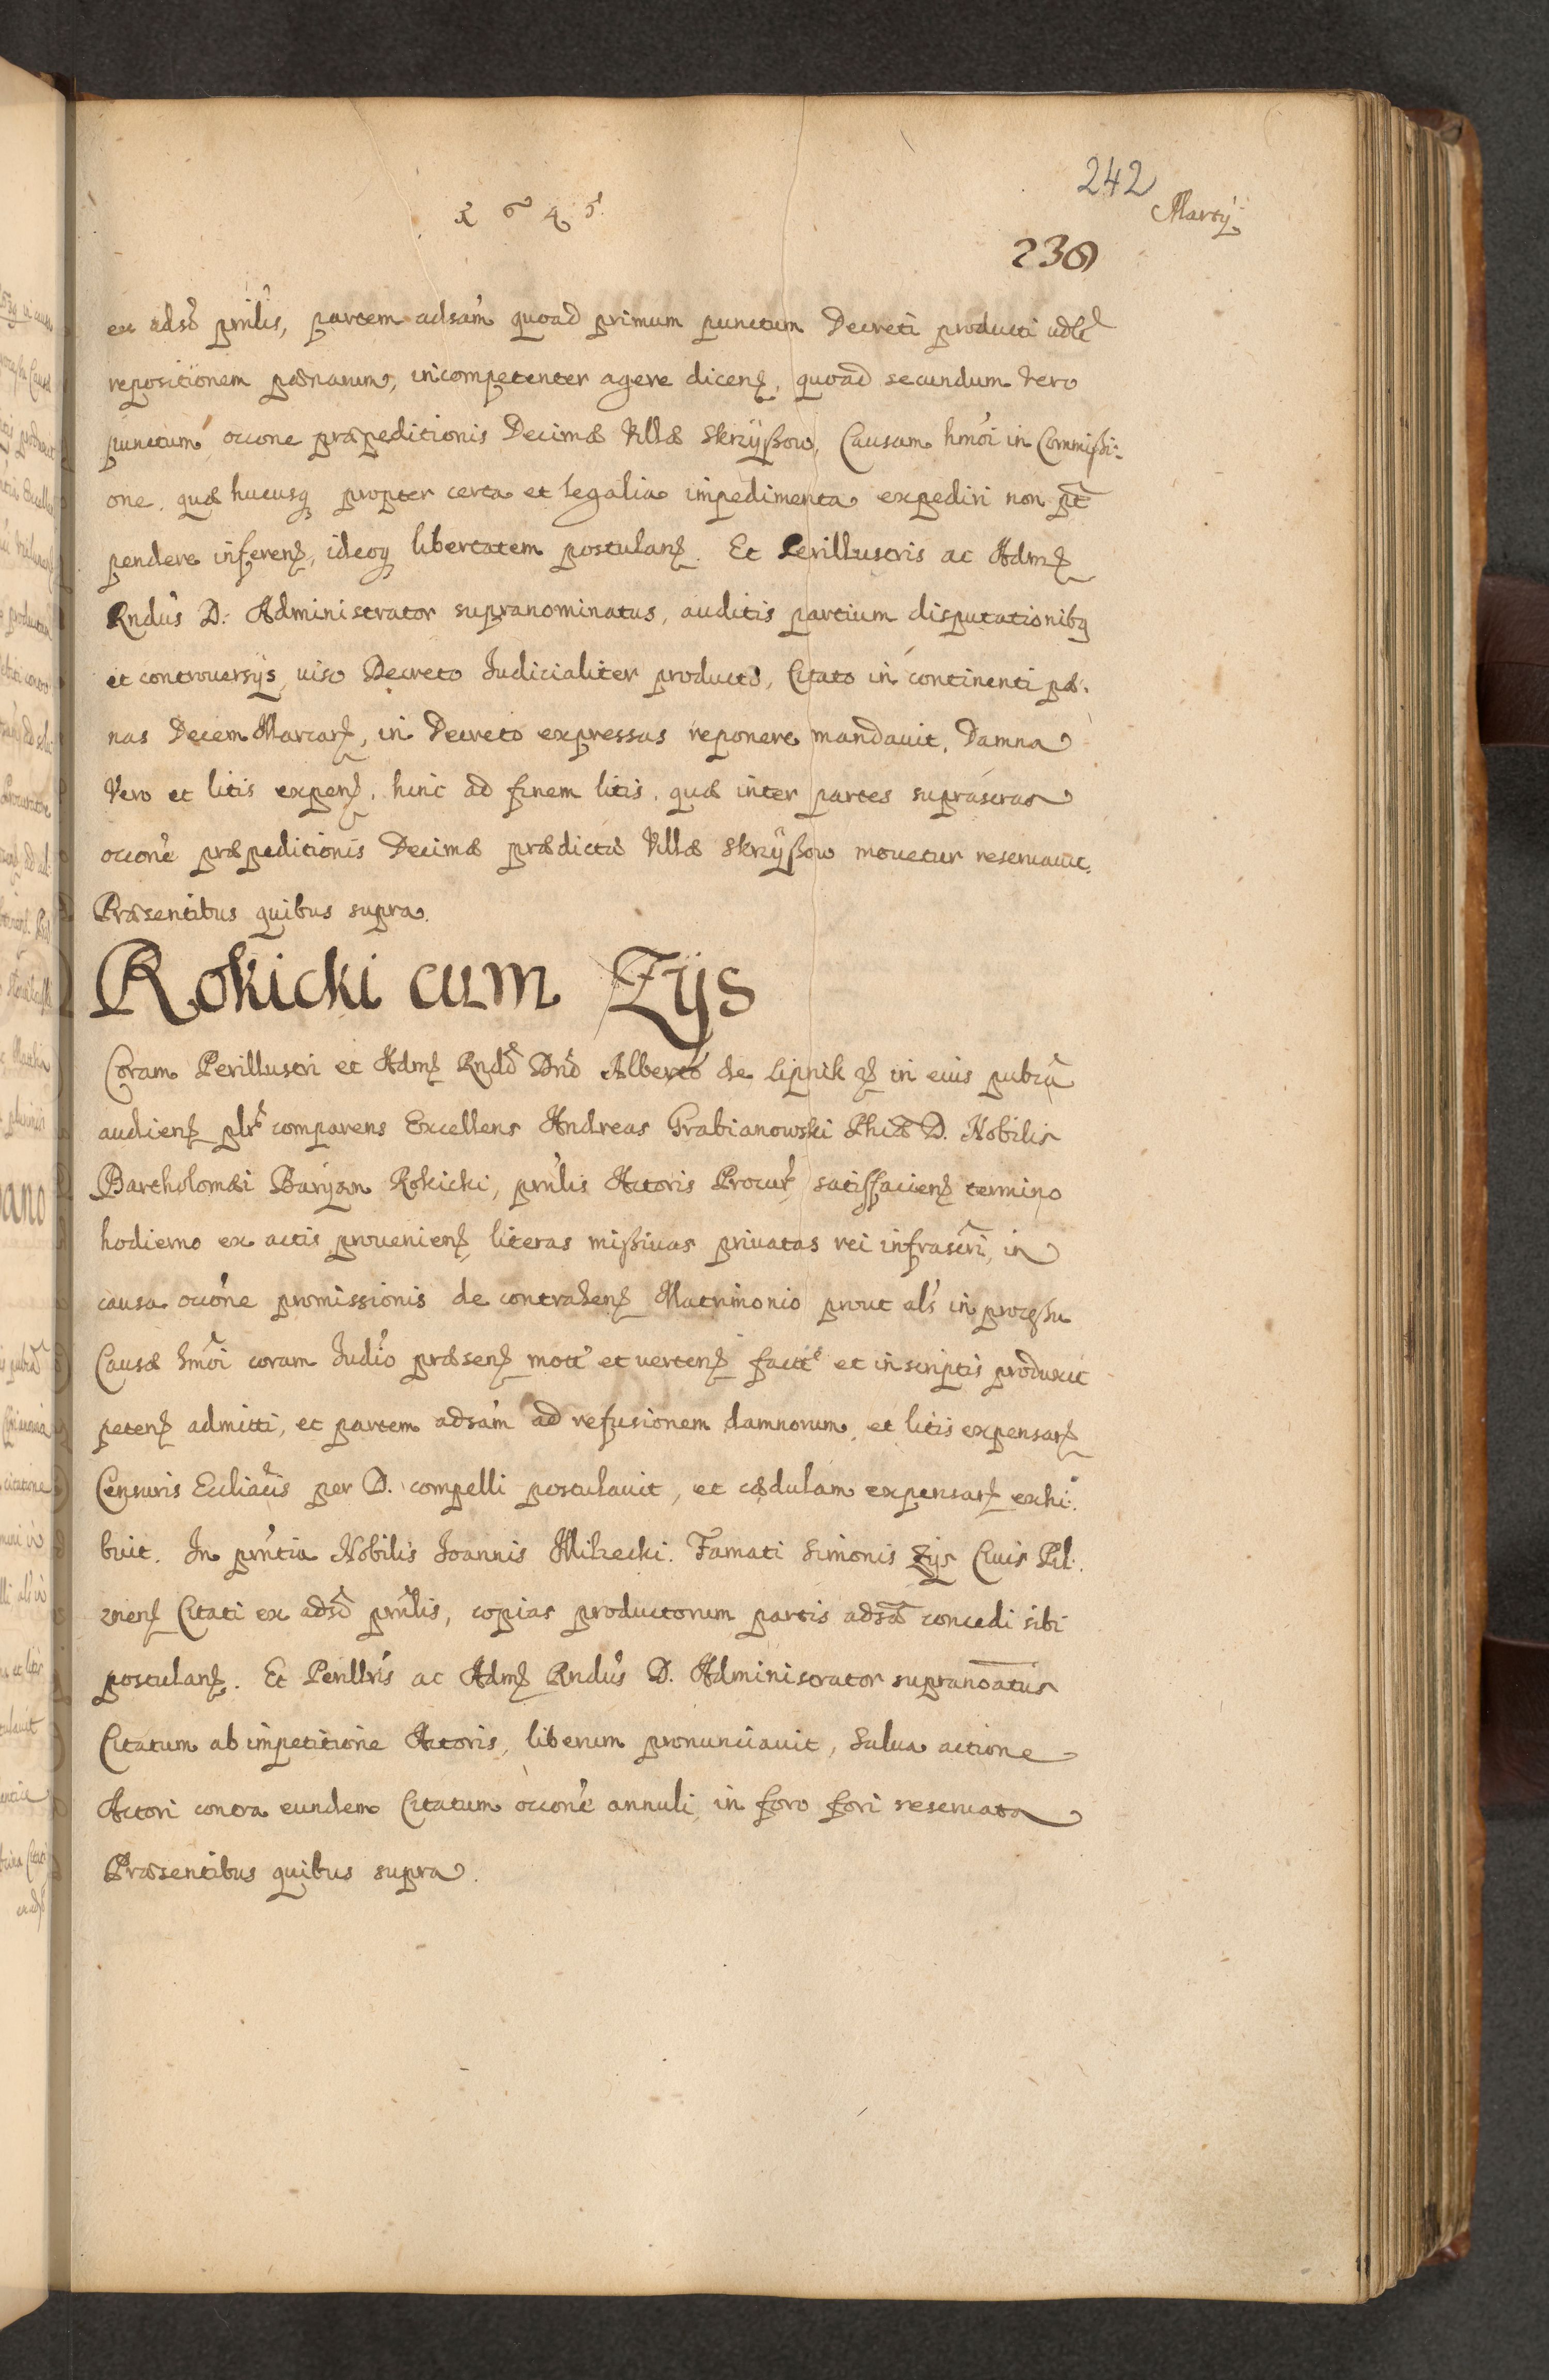 242
1645.
Martÿ
236
ex adsõ pñlis, partem adsam quoad primum punctum Decreti producti
repositionem pœnarum, incompetenter agere dicenß, quoad secundum vero
punctum occone præpeditionis Decimæ Villæ Skrzÿßow, Causam hmoi in Commißi-
one, quæ hucusq propter certa et legalia impedimenta expediri non pt
pendere inferenß, ideoq libertatem postulanß. Et Perillustris ac Admß
Rndus D. Administrator supranominatus, auditis partium disputationibq
et controuersÿs, uiso Decreto Iudicialiter producto, Citato in continenti pæ-
nas Decem Marcarß, in Decreto expressas reponere mandauit, Damna
Vero et litis expenß, hinc ad finem litis, quæ inter partes suprascras
occone præpeditionis Decimæ prædictæ Villæ Skrzÿßow mouetur reseruauit.
Præsentibus quibus supra.
Rokicki cum Zÿs
Coram Perillustri et Admß Rndõ Dnõ Alberto de Lipnik ß in eius pubca
audienß plr comparens Excellens Andreas Grabianowski Phiæ D. Nobilis
Bartholomæi Barÿan Rokicki, pñlis Actoris Procur satisfacienß termino
hodierno ex actis prouenienß literas mißiuas priuatas rei infrascri, in
causa occone promissionis de contrahenß Matrimonio prout als in proceßu
Causæ hmoi coram Iudio præsenß mott et uertenß factt et in scriptis produxit
petenß admitti, et partem adsam ad refusionem damnorum, et litis expensarß
Censuris Eccliacis per D. compelli postulauit, et cædulam expensarß exhi-
buit. In pñtia Nobilis Ioannis Milzecki. Famati Simonis Zÿs Ciuis Pil-
znenß Citati ex adsõ pñlis, copias productorum partis adsæ concedi sibi
postulanß. Et Perillris ac Admß Rndus D. Administrator supranoatus
Citatum ab impetitione Actoris, liberum pronunciauit, salua actione
Actori contra eundem Citatum occone annuli, in foro fori reseruata
Præsentibus quibus supra.